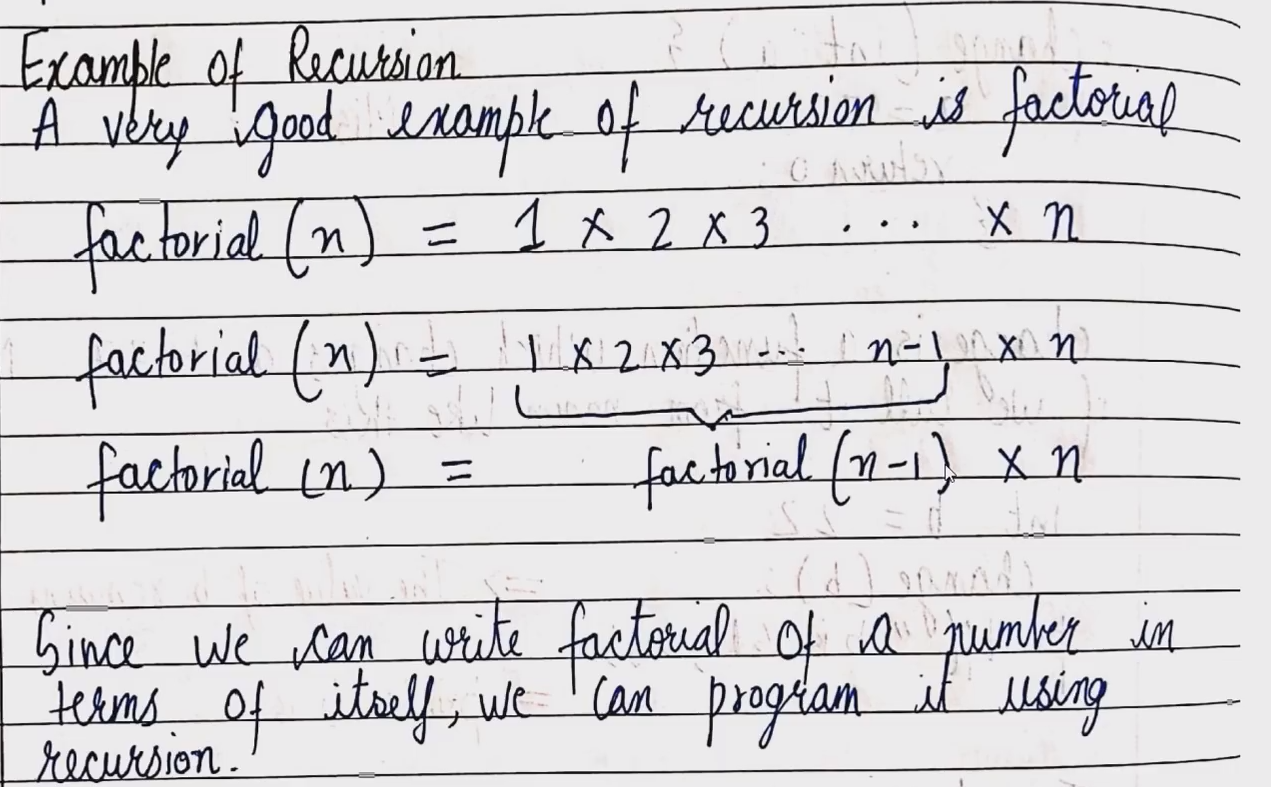 Example of Recursion
A very good example of recursion is factorial
factorial (n) = 1 × 2 × 3 ... × n
factorial (n) = 1 × 2 × 3 ... n-1 × n
factorial (n) = factorial (n-1) × n
Since we can write factorial of a number in
terms of itself, we can program it using
recursion.